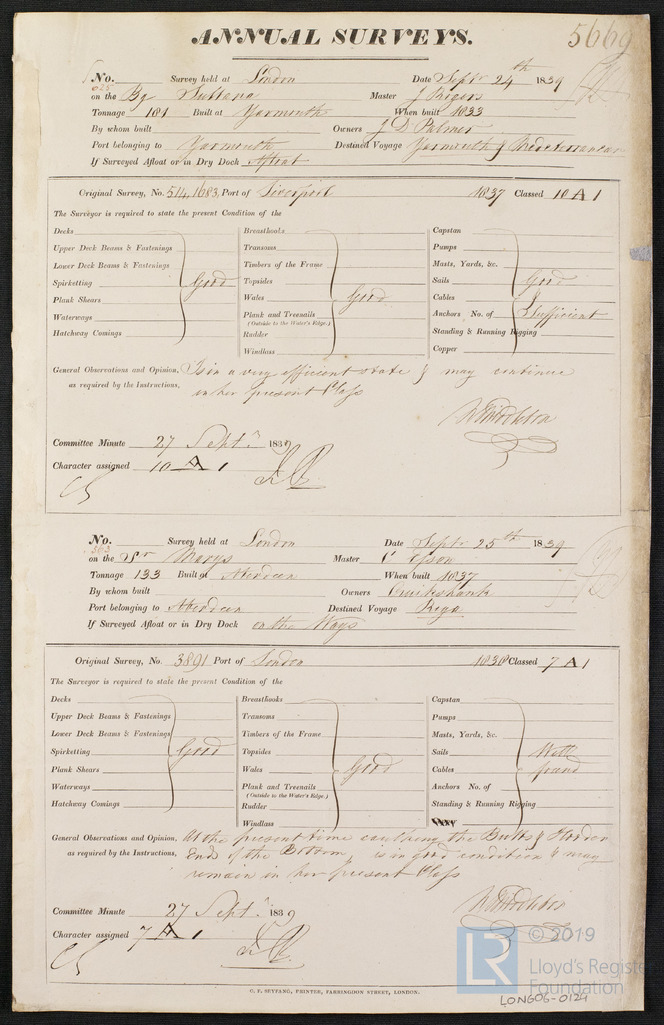 ANNUAL SURVEYS.
5669
No. 625 Survey held at London Date Septr 24th 1839
on the Bg Sultana Master J Rogers
Tonnage 181 Built at Yarmouth When built 1833
By whom built Owners J D Palmer
Port belonging to Yarmouth Destined Voyage Yarmouth & Mediterranean
If Surveyed Afloat or in Dry Dock Afloat
Original Survey, No. 514,1683, Port of Liverpool 1837 Classed 10 A 1
The Surveyor is required to state the present Condition of the
Decks
Upper Deck Beams & Fastenings
Lower Deck Beams & Fastenings
Spirketting
Plank Shears
Waterways
Hatchway Comings
Good
Breasthooks
Transoms
Timbers of the Frame
Topsides
Wales
Plank and Treenails
(Outside to the Water's Edge.)
Rudder
Windlass
Good
Capstan
Pumps
Masts, Yards, &c.
Sails
Cables
Anchors No. of
Standing & Running Rigging
Copper
Good
& Sufficient
General Observations and Opinion, Is in a very efficient state & may continue
as required by the Instructions. in her present Class
Committee Minute 27 Septr. 1839
Character assigned 10 A 1
No. 363 Survey held at London Date Septr 25th 1839
on the Sr Marys Master
Tonnage 133 Built at Aberdeen When built 1837
By whom built Owners Cruikshank
Port belonging to Aberdeen Destined Voyage Riga
If Surveyed Afloat or in Dry Dock on the Ways
Original Survey, No. 3891 Port of London 1838 Classed 7 A 1
The Surveyor is required to state the present Condition of the
Decks
Upper Deck Beams & Fastenings
Lower Deck Beams & Fastenings
Spirketting
Plank Shears
Waterways
Hatchway Comings
Good
Breasthooks
Transoms
Timbers of the Frame
Topsides
Wales
Plank and Treenails
(Outside to the Water's Edge.)
Rudder
Windlass
Good
Capstan
Pumps
Masts, Yards, &c.
Sails
Cables
Anchors No. of
Standing & Running Rigging
Well
found
General Observations and Opinion, At the present time caulking the Butts & Hooden
as required by the Instructions, Ends of the Bottom, is in good condition & may
remain in her present Class
Committee Minute 27 Septr. 1839
Character assigned 7 A 1
C. F. SEYFANG, PRINTER, FARRINGDON STREET, LONDON.
LR © 2019
Lloyd's Register
Foundation
LON606-0124